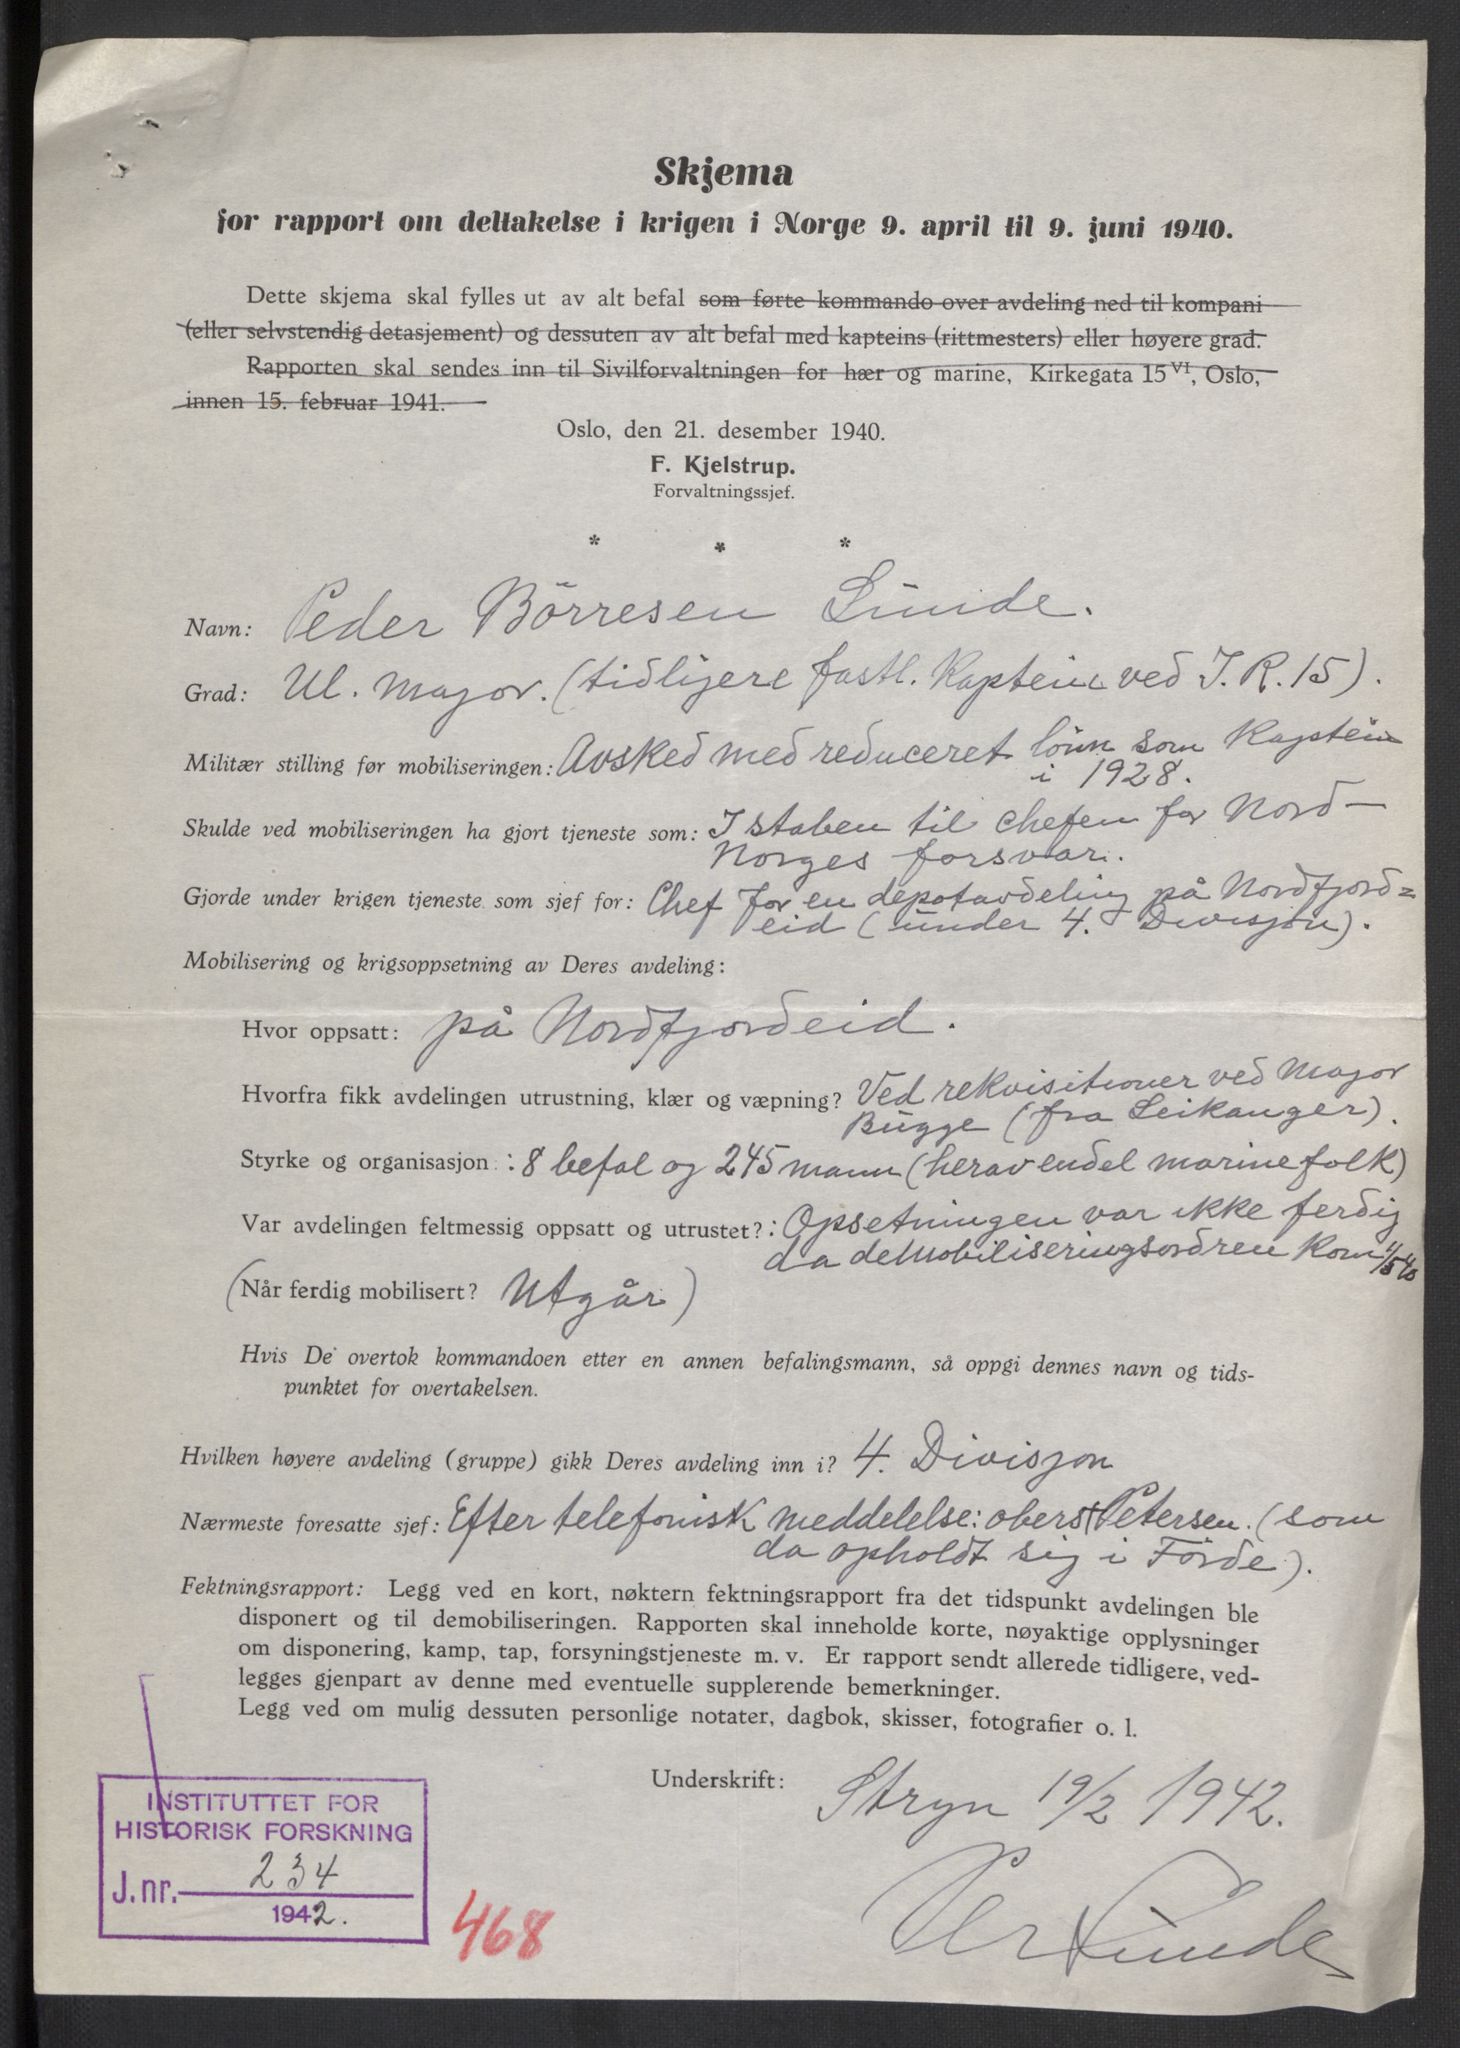 Skjema
for rapport om deltakelse i krigen i Norge 9. april til 9. juni 1940.
Dette skjema skal fylles ut av alt befal som førte kommando over avdeling ned til kompani
(eller selvstendig detasjement) og dessuten av alt befal med kapteins (rittmesters) eller høyere grad.
Rapporten skal sendes inn til Sivilforvaltningen for hær og marine, Kirkegata 15 VI, Oslo,
innen 15. februar 1941.
Oslo, den 21. desember 1940.
F. Kjelstrup.
Forvaltningssjef.
* * *
Navn: Peder Börresen Lunde.
Grad: Ul. major. (tidligere fastl. Kaptein ved I.R. 15).
Militær stilling før mobiliseringen: Avsked med reduceret lönn som Kaptein
i 1928.
Skulde ved mobiliseringen ha gjort tjeneste som: I staben til chefen for Nord-
Norges forsvar.
Gjorde under krigen tjeneste som sjef for: Chef for en depotavdeling på Nordfjord=
eid (under 4. Divisjon).
Mobilisering og krigsoppsetning av Deres avdeling:
Hvor oppsatt: på Nordfjordeid.
Hvorfra fikk avdelingen utrustning, klær og væpning? Ved rekvisitioner ved Major
Bugge (fra Leikanger).
Styrke og organisasjon : 8 befal og 245 mann (herav endel marinefolk)
Var avdelingen feltmessig oppsatt og utrustet?: Opsetningen var ikke ferdig
da demobiliseringsordren kom 1/5 40
(Når ferdig mobilisert? Utgår)
Hvis De overtok kommandoen etter en annen befalingsmann, så oppgi dennes navn og tids-
punktet for overtakelsen.
Hvilken høyere avdeling (gruppe) gikk Deres avdeling inn i? 4. Divisjon
Nærmeste foresatte sjef: Efter telefonisk meddelelse: oberst Petersen. (som
da opholdt sig i Förde).
Fektningsrapport: Legg ved en kort, nøktern fektningsrapport fra det tidspunkt avdelingen ble
disponert og til demobiliseringen. Rapporten skal inneholde korte, nøyaktige opplysninger
om disponering, kamp, tap, forsyningstjeneste m. v. Er rapport sendt allerede tidligere, ved-
legges gjenpart av denne med eventuelle supplerende bemerkninger.
Legg ved om mulig dessuten personlige notater, dagbok, skisser, fotografier o. l.
Underskrift: Stryn 19/2 1942.
INSTITUTTET FOR
HISTORISK FORSKNING
J.nr. 234
1942.
468
Per Lunde